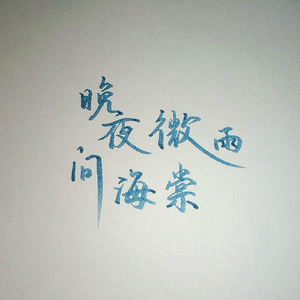 晚夜微雨
问海棠